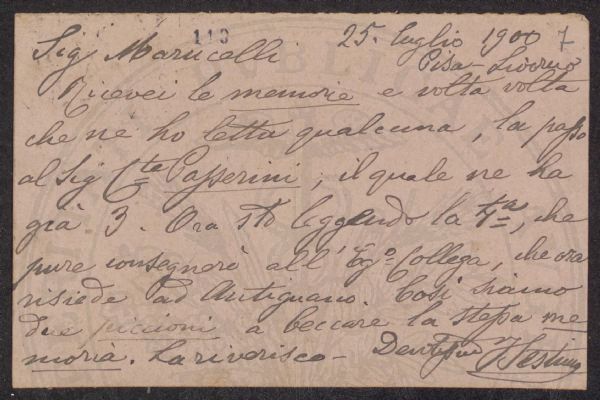 113
25. luglio 1900 7
Sig Marucelli Pisa-Livorno
Ricevei le memorie e volta volta
che ne ho letta qualcuna, la passo
al Sig Cte Passerini, il quale ne ha
già 3. Ora sto leggendo la 4a, che
pure consegnerò all' Egº Collega, che ora
risiede ad Antignano. Così siamo
due piccioni a beccare la stessa me
moria. La riverisco-